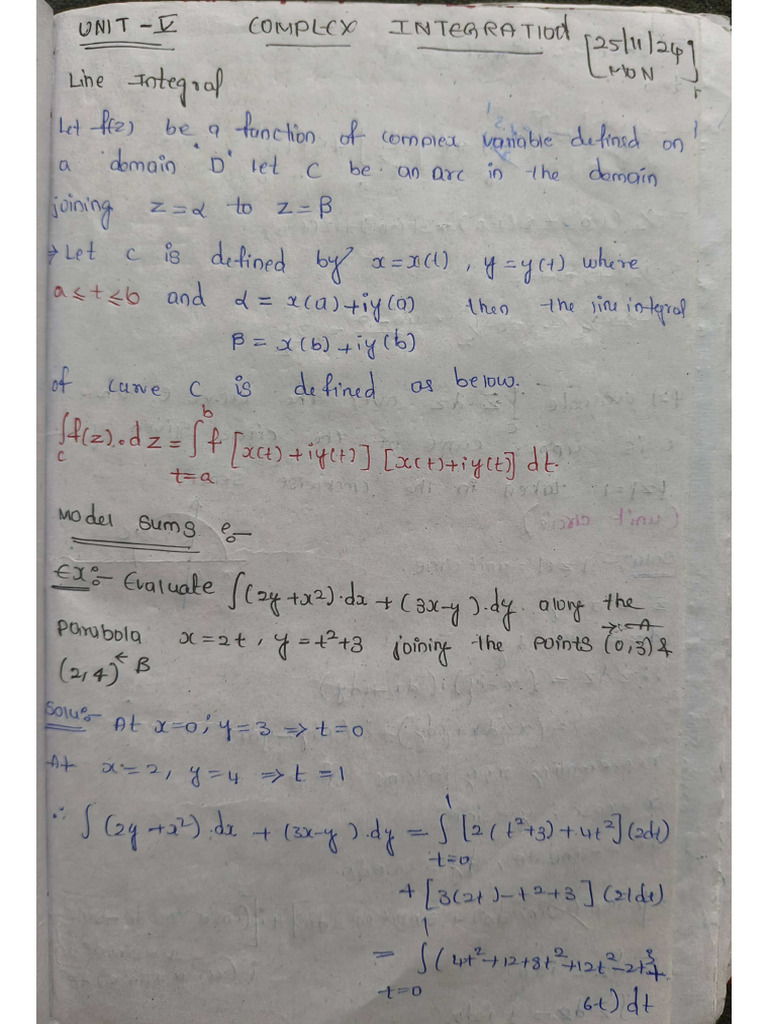 UNIT - V COMPLEX INTEGRATION [25/11/24
MON]
Line Integral
Let f(z) be a function of complex variable defined on
a domain 'D' let C be an arc in the domain
joining z=α to z=β
→ Let C is defined by x=x(t), y=y(t) where
a≤t≤b and α = x(a)+iy(a) then the line integral
β = x(b)+iy(b)
of curve C is defined as below.
∫_C f(z).dz = ∫_{t=a}^{b} f [x(t)+iy(t)] [x(t)+iy(t)] dt.
Model Sums :-
Ex:- Evaluate ∫(2y+x²).dx + (3x-y).dy along the
parabola x=2t, y=t²+3 joining the points (0,3) → A &
(2,4) ← B
Solu:- At x=0; y=3 ⇒ t=0
At x=2, y=4 ⇒ t=1
∴ ∫(2y+x²).dx + (3x-y).dy = ∫_{t=0}^{1} [2(t²+3)+4t²](2dt)
+ [3(2t)-t²+3](2tdt)
= ∫_{t=0}^{1} (4t²+12+8t²+12t²-2t³+
6t)dt